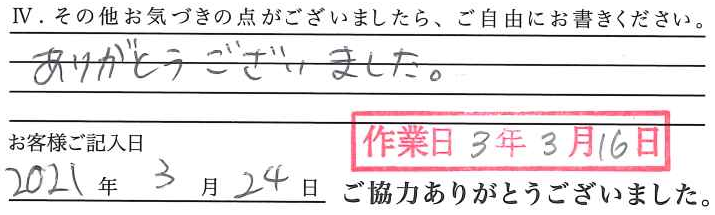 Ⅳ．その他お気づきの点がございましたら、ご自由にお書きください。
ありがとうございました。
お客様ご記入日
作業日 3年 3月16日
2021年 3月24日 ご協力ありがとうございました。